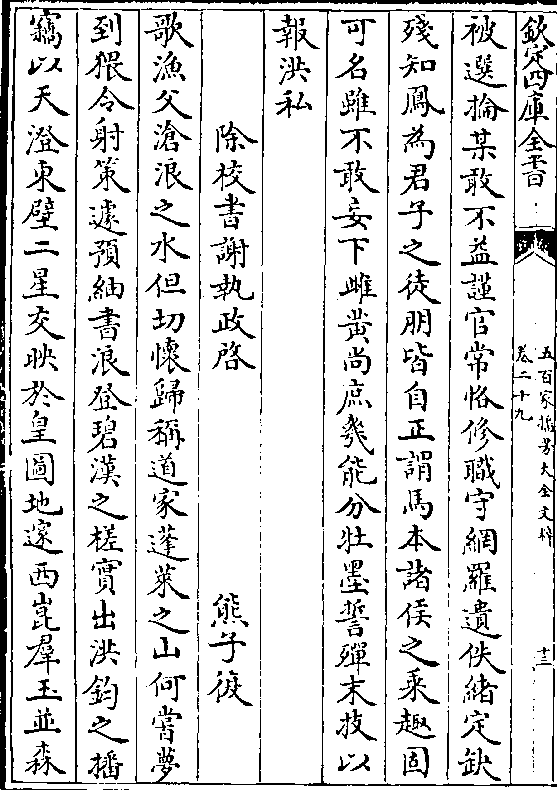 欽定四庫全書
五百家播芳大全文粹
卷二十九
十三
被選掄某敢不益謹官常恪修職守網羅遺佚緒定缺
殘知鳳為君子之徒朋皆自正謂馬本諸侯之乘趣固
可名雖不敢妄下雌黄尚庶幾能分壯墨誓殫末技以
報洪私
除校書謝執政啓
熊子復
歌漁父滄浪之水但切懷歸稱道家蓬萊之山何嘗夢
到猥令射策遽預紬書浪登碧漢之槎實出洪鈞之播
竊以天澄東壁二星交映於皇圖地邃西崑羣玉並森